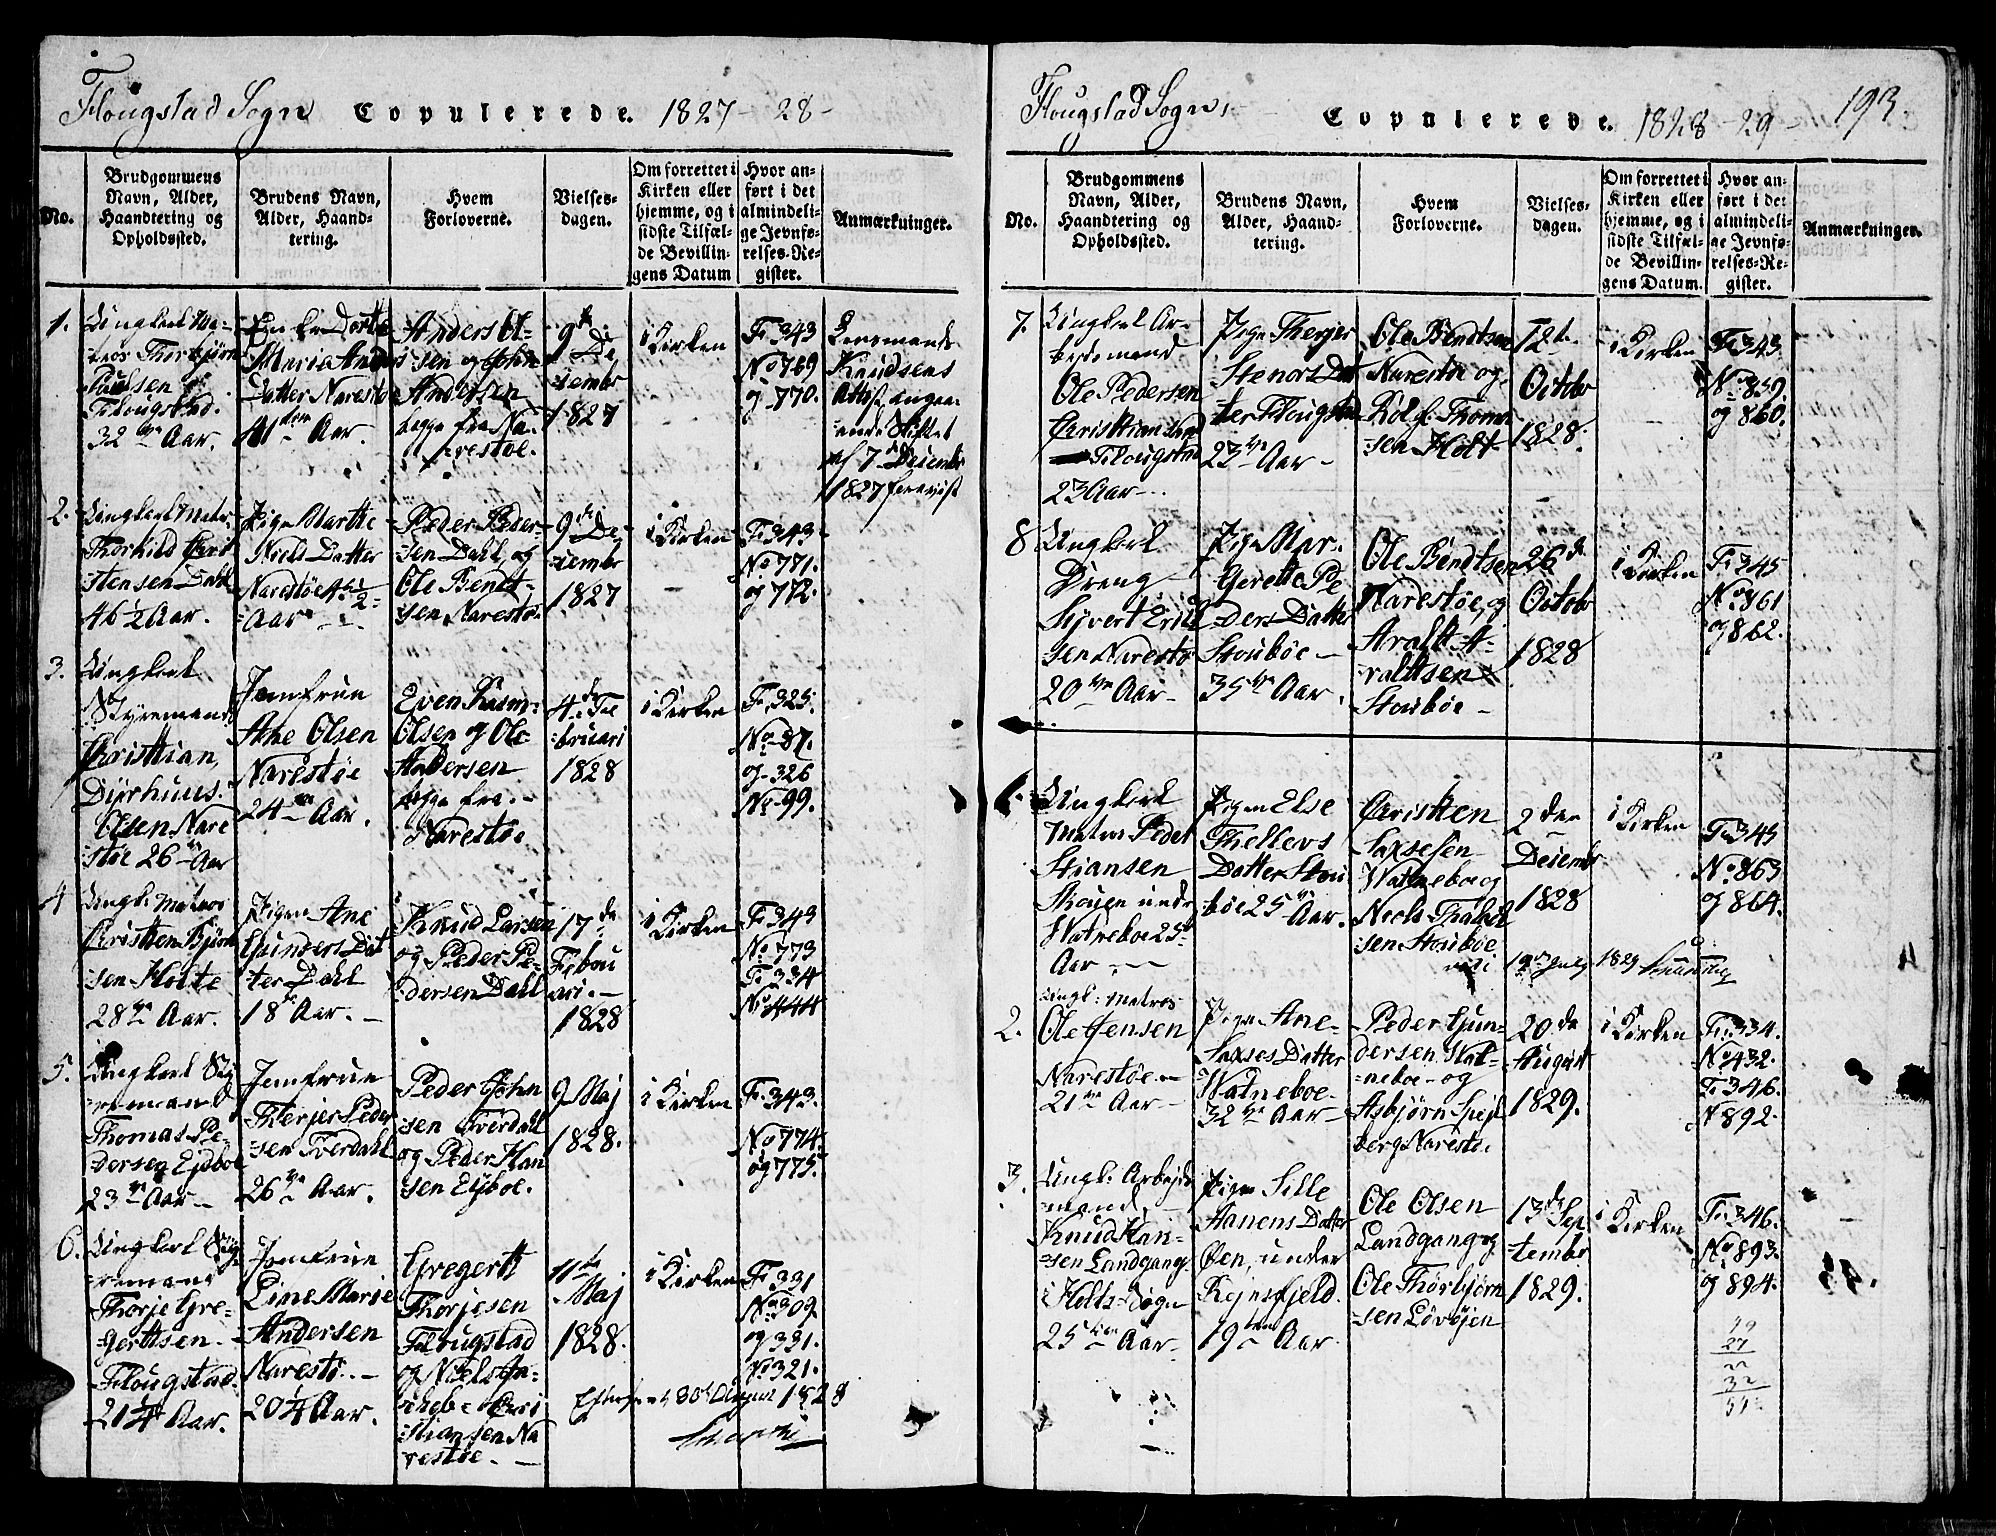 Flougstad Sogn Copulerede. 1827-28-
No.
Brudgommens Navn, Alder, Haandtering og Opholdssted.
Brudens Navn, Alder, Haandtering.
Hvem Forloverne.
Vielsesdagen.
Om forrettet i Kirken eller hjemme, og i sidste Tilfælde Bevillingens Datum
Hvor anført i det almindelige Jevnførelses-Register.
Anmærkninger.
1.
Ungkarl Matros Thorbjørn
Poulsen
Flougstad.
32 Aar.
Enke Dorte
Maria Anders
Datter Narestøe
41 Aar.
Anders Olsen og John
Andersen
begge fra Narestøe.
9de December
1827
i Kirken
F. 343
No 769
og 770.
Lensmands
Knudsens
Attest angaaende Skiftet
af 7 December
1827 foreviist
2.
Ungkarl Matros
Thorkild Christensen Dahl
46 1/2 Aar.
Pige Marthe
Niels Datter
Narestøe 46 1/2
Aar
Peder Pedersen Dahl og
Ole Bendtsen Narestøe
9de December
1827
i Kirken
F. 343
No 771.
og 772.
3.
Ungkarl
Styrmand
Christian
Dyrhuus
Olsen Narestøe 26 Aar
Jomfrue
Ane Olsen
Narestøe
24 Aar.
Even Rasm.
Olsen og Ole
Andersen
begge fra
Narestøe
4de Februari
1828
i Kirken
F. 325.
No 87.
og 326
No 99.
4
Ungk. Matros
Christen Bjørnsen Holte
28 Aar.
Pigen Ane
Gunders Datter Dahl
18 Aar.
Knud Larsen
og Peder Pedersen Dahl
17de
Februari.
1828
i Kirken
F. 343
No 773
F. 334
No 444
5.
Ungkarl Styrmand
Thomas Pedersen Eijdboe
23 Aar
Jomfrue
Therjer Pedersen Tverdahl
26 Aar.
Peder Johnsen Tverdahl
og Peder Hansen Eijboe.
9 Maj
1828.
i Kirken
F. 343.
No 774.
og 775.
6.
Ungkarl Styrmand
Thorje Gregerttsen
Flougstad
21 1/4 Aar.
Jomfrue
Line Marie
Andersen
Narestø.
20 1/4 Aar.
Gregertt
Thorjesen
Flougstad
og Niels
Christiansen Narestøe.
11te
Maj
1828.
i Kirken
F. 331
No 309
og 331.
No 321.
1828
Flougstad Sogn, Copulerede. 1828-29- 193
No.
Brudgommens Navn, Alder, Haandtering og Opholdssted.
Brudens Navn, Alder, Haandtering.
Hvem Forloverne.
Vielsesdagen.
Om forrettet i Kirken eller hjemme, og i sidste Tilfælde Bevillingens Datum.
Hvor anført i det almindelige Jevnførelses-Register.
Anmærkninger.
7.
Ungkarl Arbejdsmand
Ole Pedersen
Flougstad
23 Aar
Pige Therjer
Stenors Datter Flougstad
22 Aar
Ole Bendtsen
Narestøe og
Rolf Thomsen Holt
12te
October
1828.
i Kirken
F. 343.
No 859.
og 860.
8
Ungkarl
Dreng
Syvert Ericksen Narestø
20 Aar
Pige Margerette Peders Datter
Stouboe
35 Aar.
Ole Bendtsen
Narestøe, og
Aralt Araltsen
Stouboe
26de
October
1828
i Kirken
F. 345
No 861
og 862.
1.
Ungkarl
Matros Peder
Stiansen
Skouen under
Watneboe 25
Aar
Pigen Else
Thellevs
Datter Stouboe 25 Aar.
Christen
Saxesen
Watneboe og
Niels
Stouboe
2den
December
1828
i Kirken
F. 345
No 863
og 864.
July 1829
2.
Ungk. Matros
Ole Jensen
Narestøe
21 Aar
Pige Ane
Saxses Datter
Watneboe
32 Aar
Peder Gundersen Watneboe og
Asbjørn Spejlberg Narestø.
20de
August
1829.
i Kirken
F. 334.
No 432.
F. 346.
N 892.
3.
Ungk. Arbejdsmand
Knud Hansen Landgang
i Holts Sogn
25 Aar
Pige Sille
Aanens Datter
Øen, under
Rejnsfjeld.
19 Aar
Ole Olsen
Landgang og
Ole Thorbjørnsen Løvøjen
13de September
1829.
i Kirken
F. 346.
No 893.
og 894.